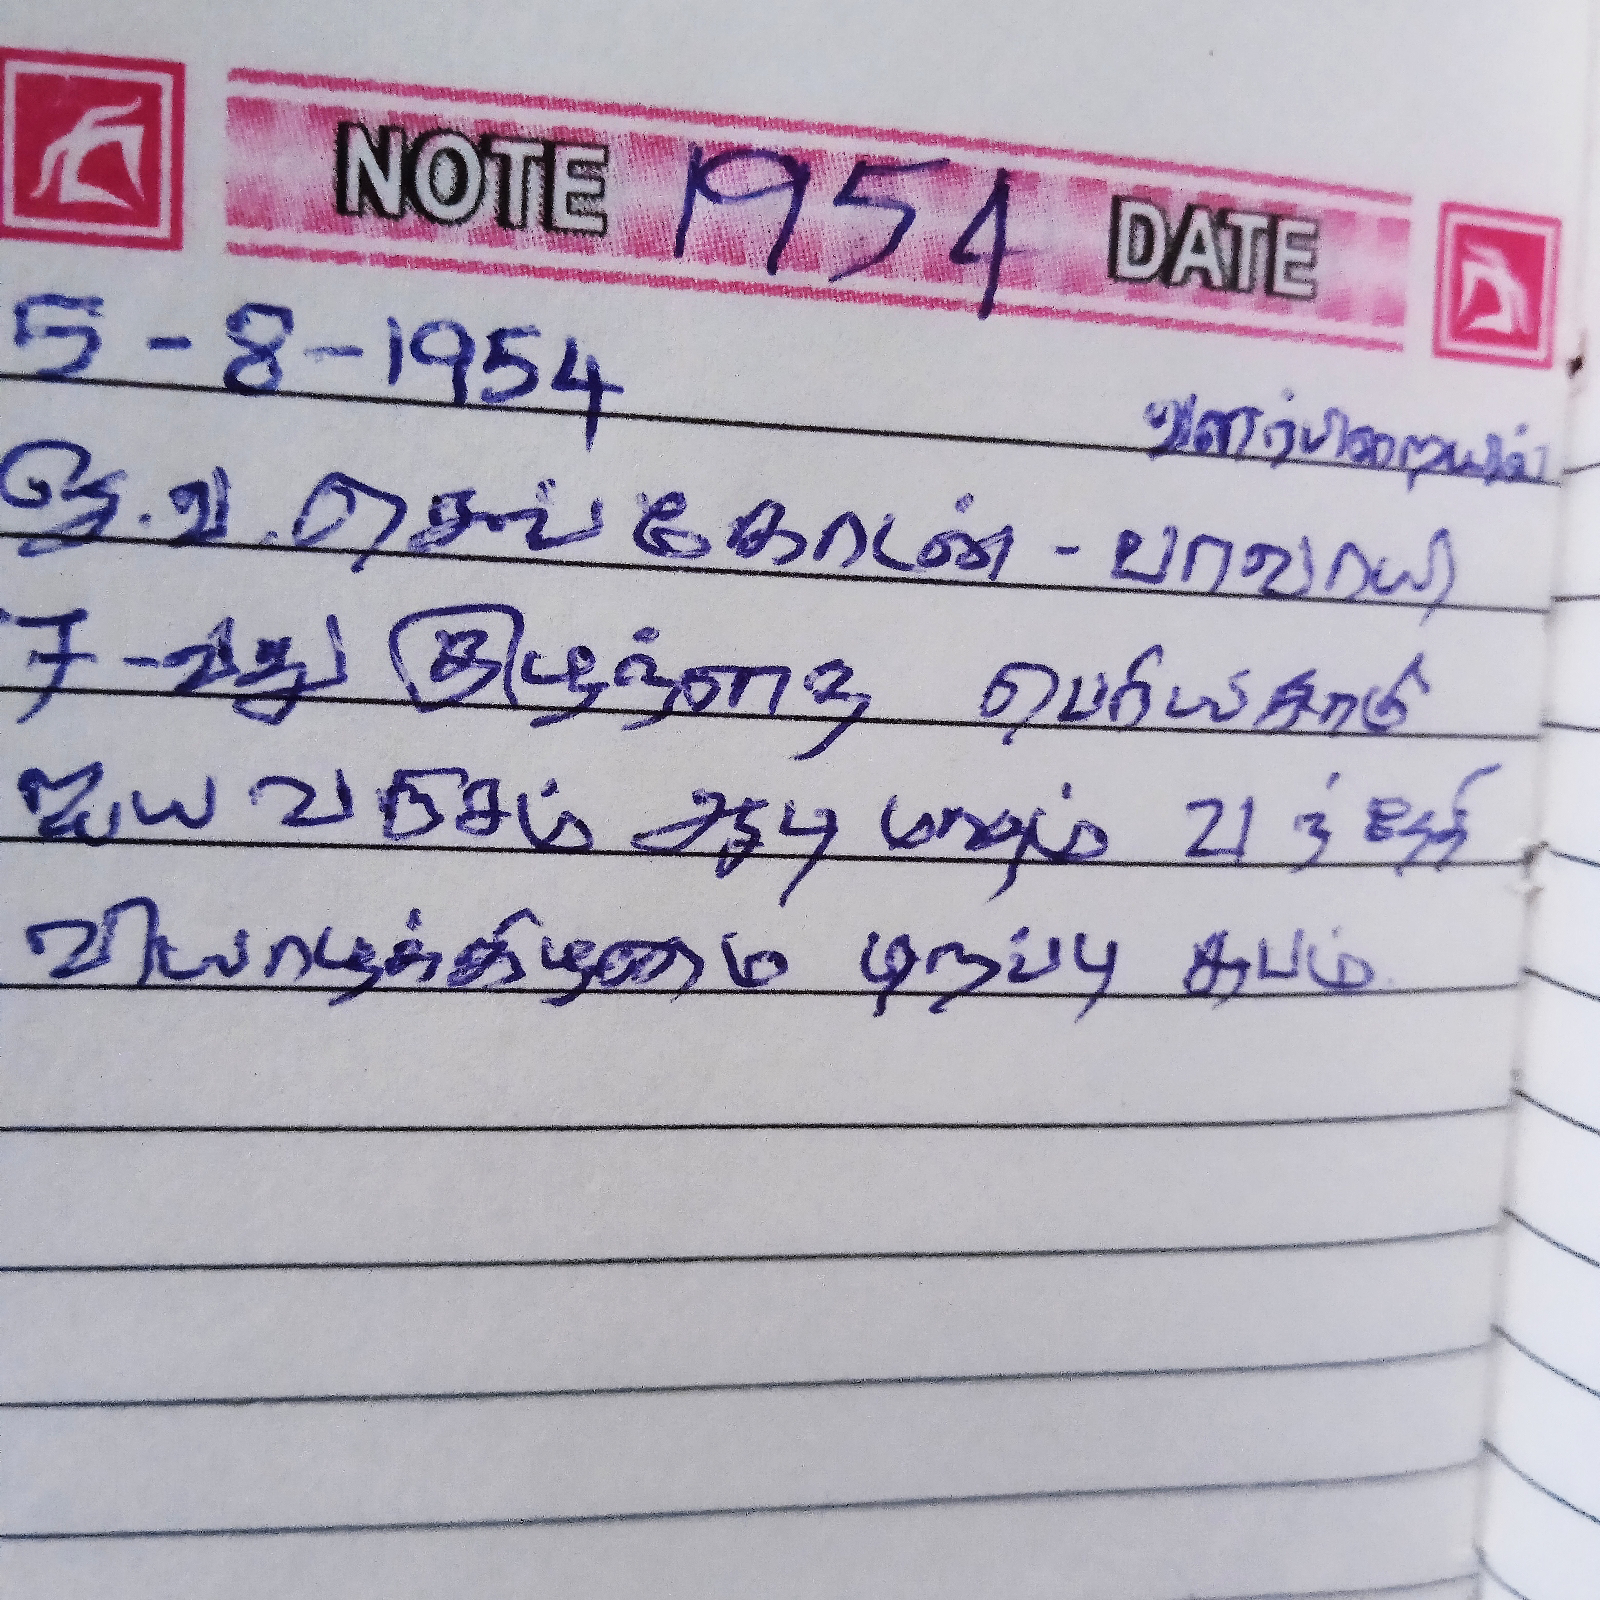 NOTE 1954 DATE
5-8-1954
வளர்பிறையில்
தே.வ. செங்கோடன் - பாவாயி
7-வது குழந்தை பெரியகாடு
ஜய வருசம் ஆடி மாதம் 21 ந் தேதி
வியாழக்கிழமை பிறப்பு சுபம்.